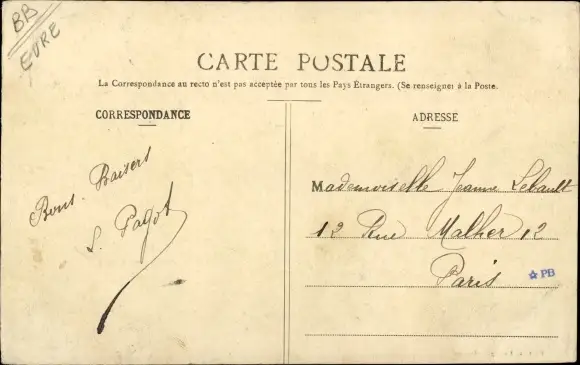 BB
EURE
CARTE POSTALE
La Correspondance au recto n'est pas acceptée par tous les Pays Étrangers. (Se renseigner à la Poste.
CORRESPONDANCE
ADRESSE
Bons Baisers
S. Pagot
Mademoiselle Jeanne Lebault
12 Rue Malher 12
Paris
☆PB